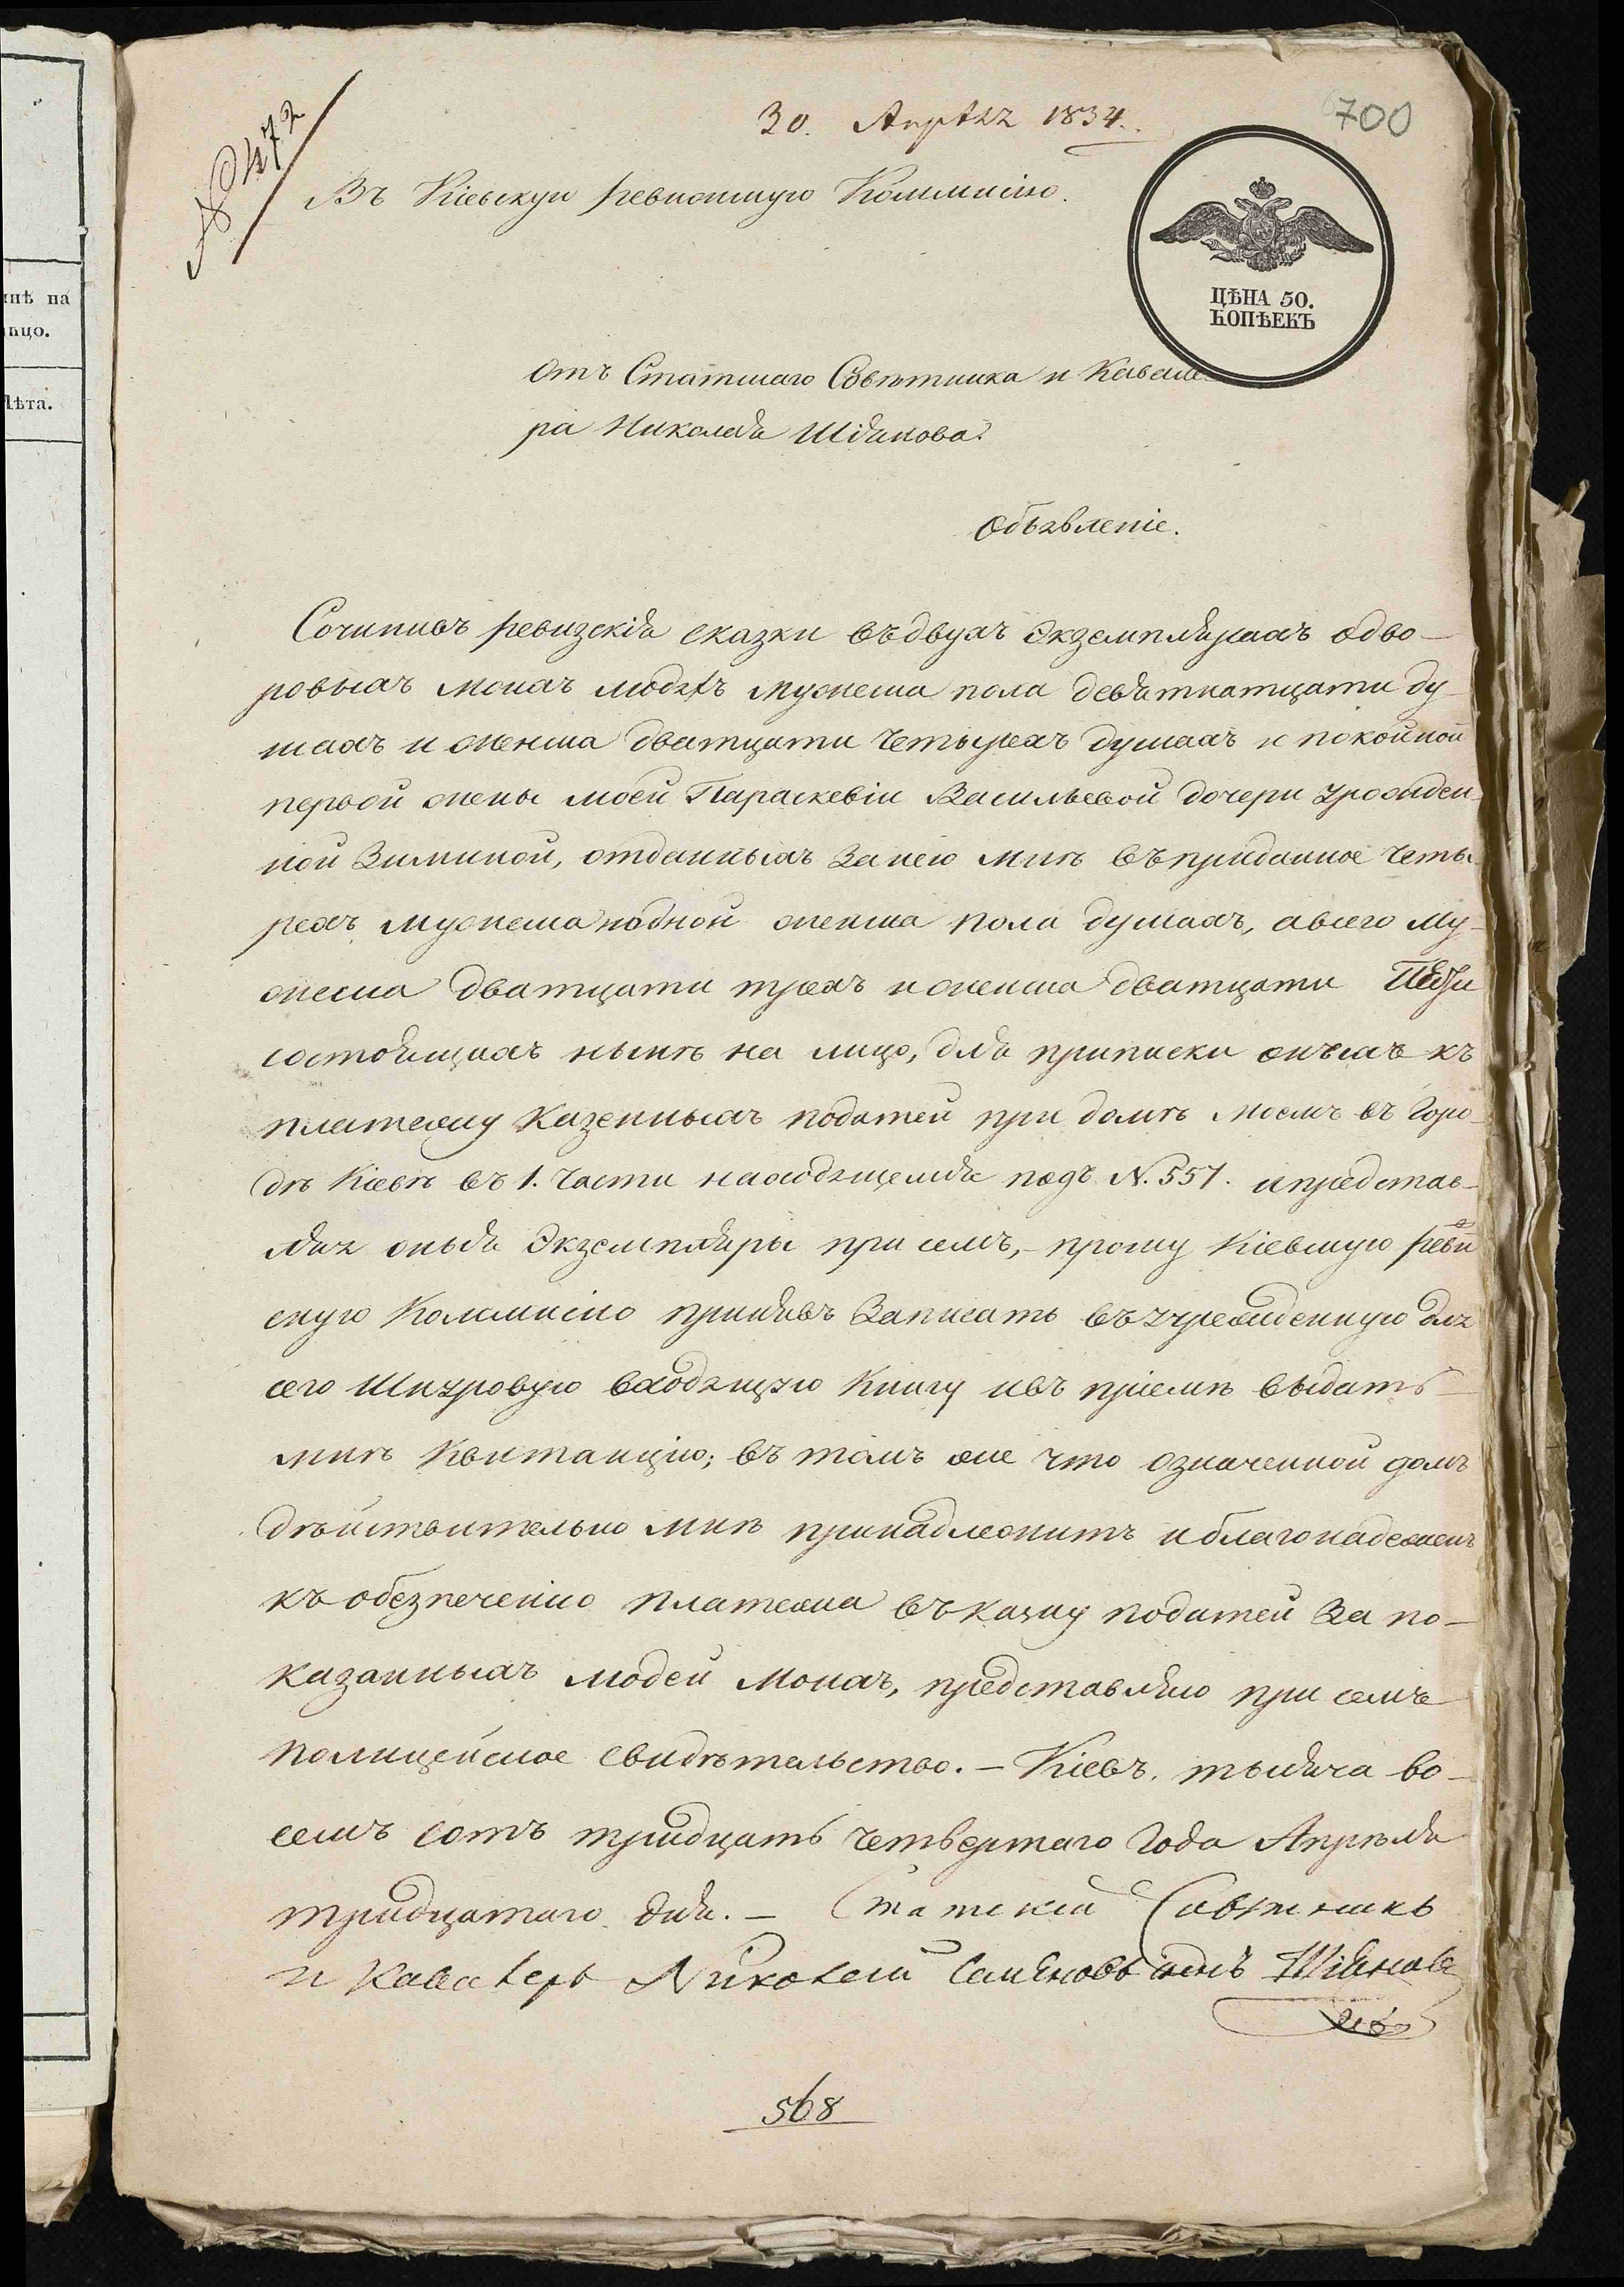 30. Апрѣля 1834.
700
№ 472
Въ Кіевскую ревизскую Коммисію.
ЦѢНА 50.
КОПѢЕКЪ
Отъ Статскаго Совѣтника и Кавале
ра Николая Шіянова.
Объявленіе.
Сочинивъ ревизскія сказки въ двухъ Экземплярахъ о дво-
ровыхъ моихъ людяхъ мужеска пола девятнатцати ду-
шахъ и женска дватцати четырехъ душахъ и покойной
первой жены моей Параскевіи Васильевой дочери урожден-
ной Зиминой, отданныхъ за нею мнѣ въ приданное четы
рехъ мужеска и одной женска пола душахъ, а всего му-
жеска дватцати трехъ и женска дватцати пяти
состоящихъ нынѣ на лицо, для приписки оныхъ къ
платежу казенныхъ податей при домѣ моемъ въ горо-
дѣ Кіевѣ въ 1. части находящемся подъ N. 557. и представ-
ляя оныя Экземпляры при семъ,- прошу Кіевскую реви
скую Коммисію принявъ записать въ учрежденную для
сего Шнуровую входящую книгу и въ пріемѣ выдать
мнѣ квитанцію; въ томъ же что означенной домъ
дѣйствительно мнѣ принадлежитъ и благонадеженъ
къ обезпеченію платежа въ казну податей за по-
казанныхъ людей моихъ, представляю при семъ
полицейское свидѣтельство. - Кіевъ, тысяча во-
семъ сотъ тридцать четвертаго года Апрѣля
тридцатаго дня. - Статской Совѣтникъ
и Кавалеръ Николай Семеновъ сынъ Шіянов
568
инѣ на
лицо.
Лѣта.